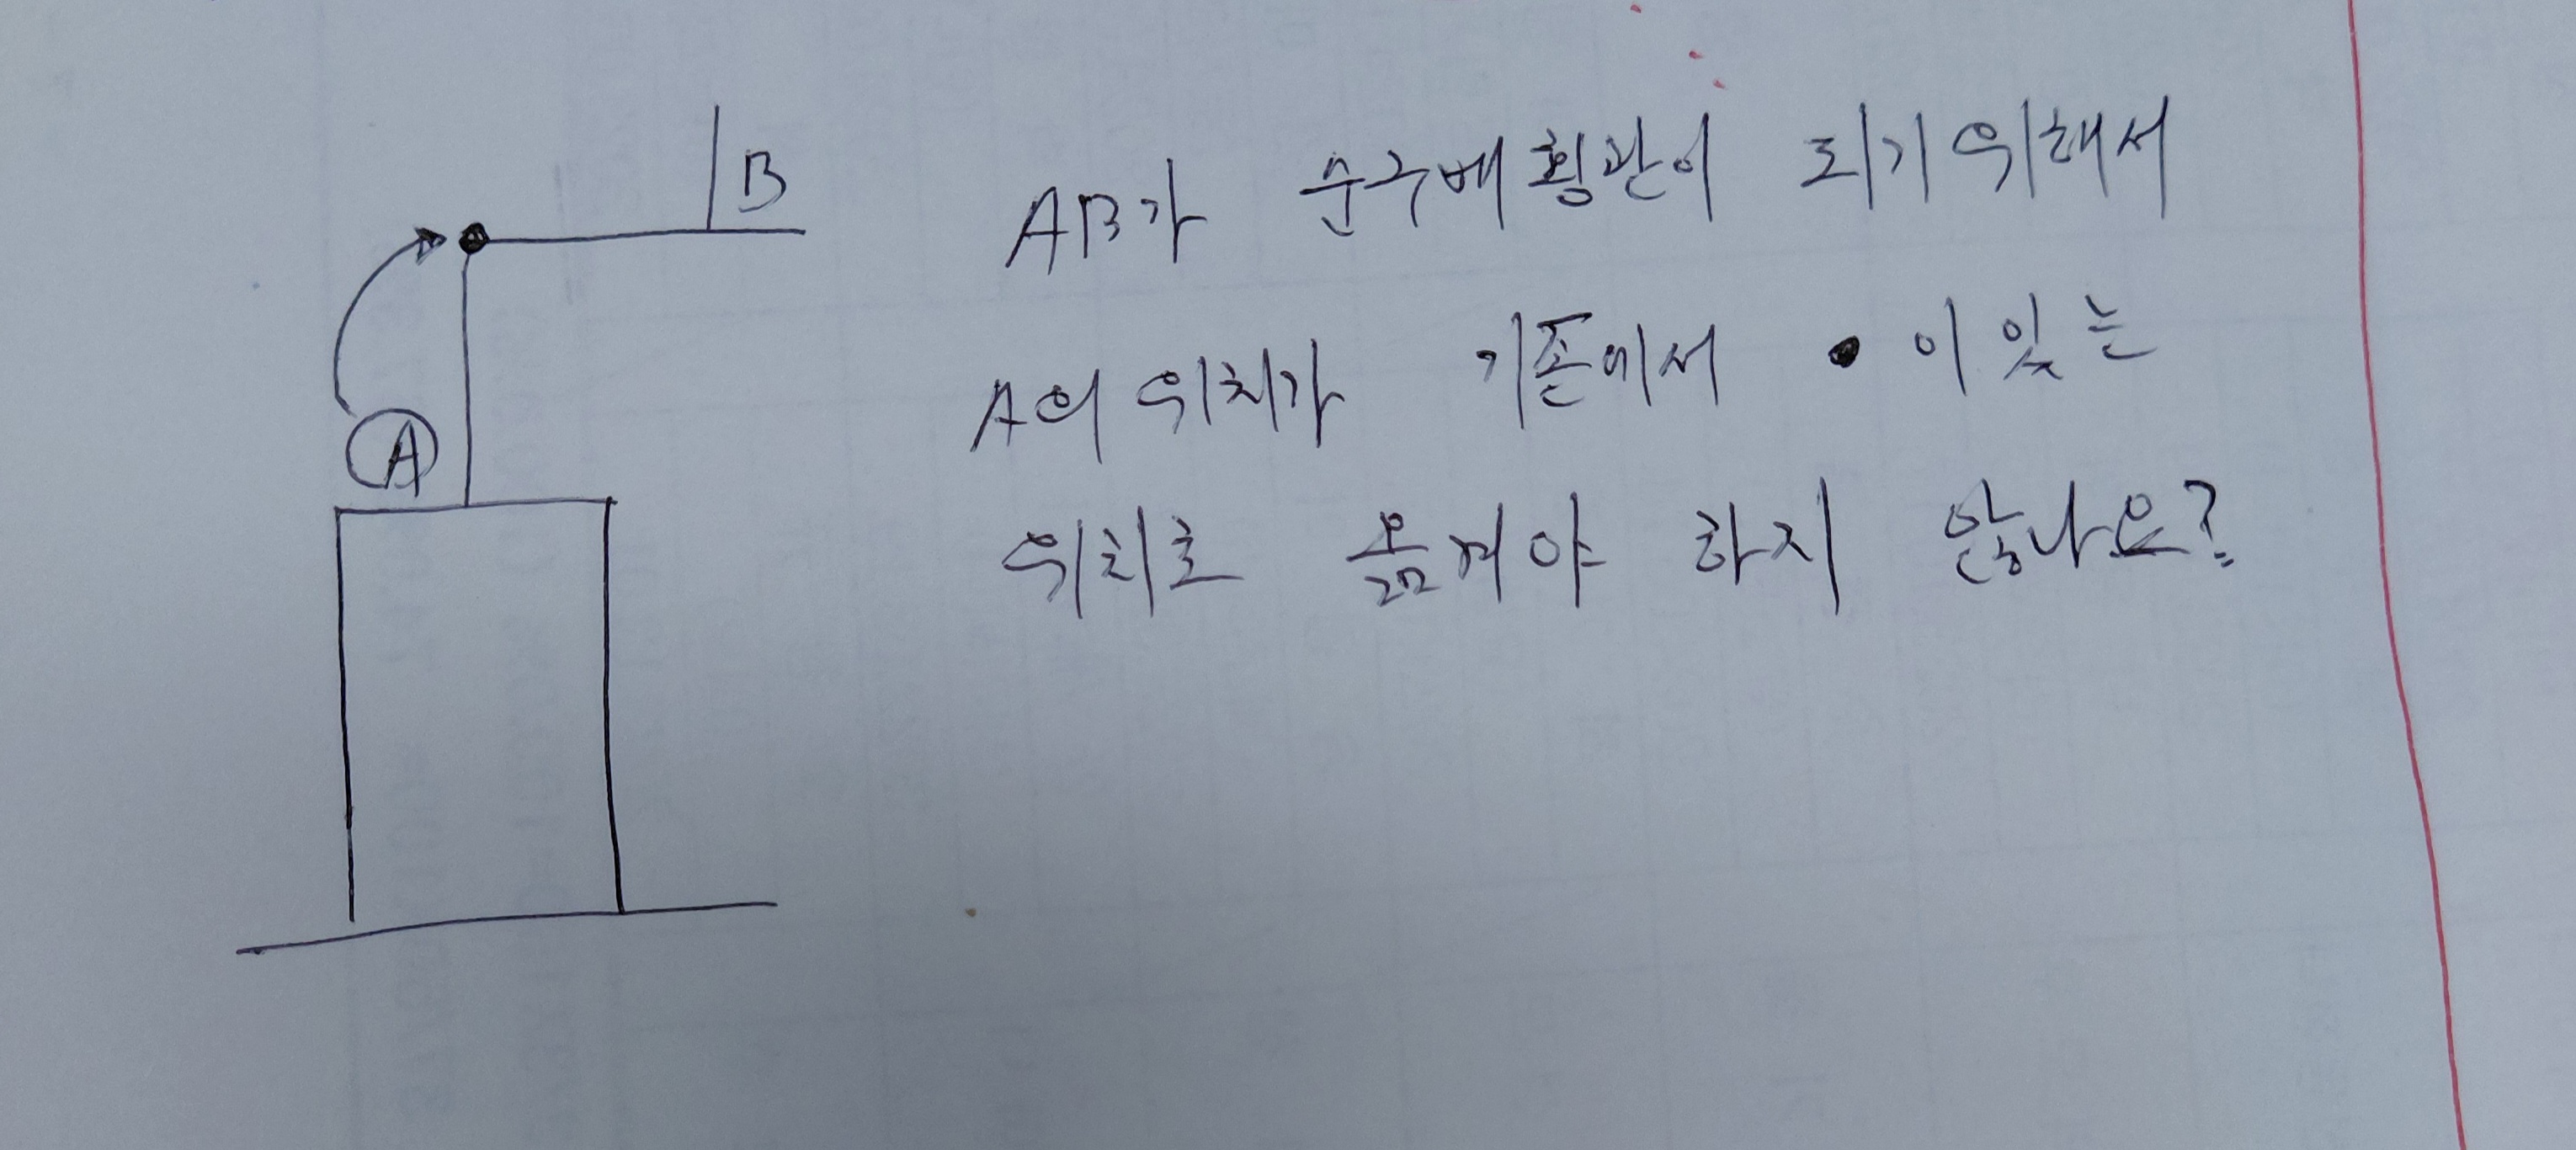 B
A
AB가 순구배 횡관이 되기 위해서
A의 위치가 기존에서 ● 이 있는
위치로 옮겨야 하지 않나요?